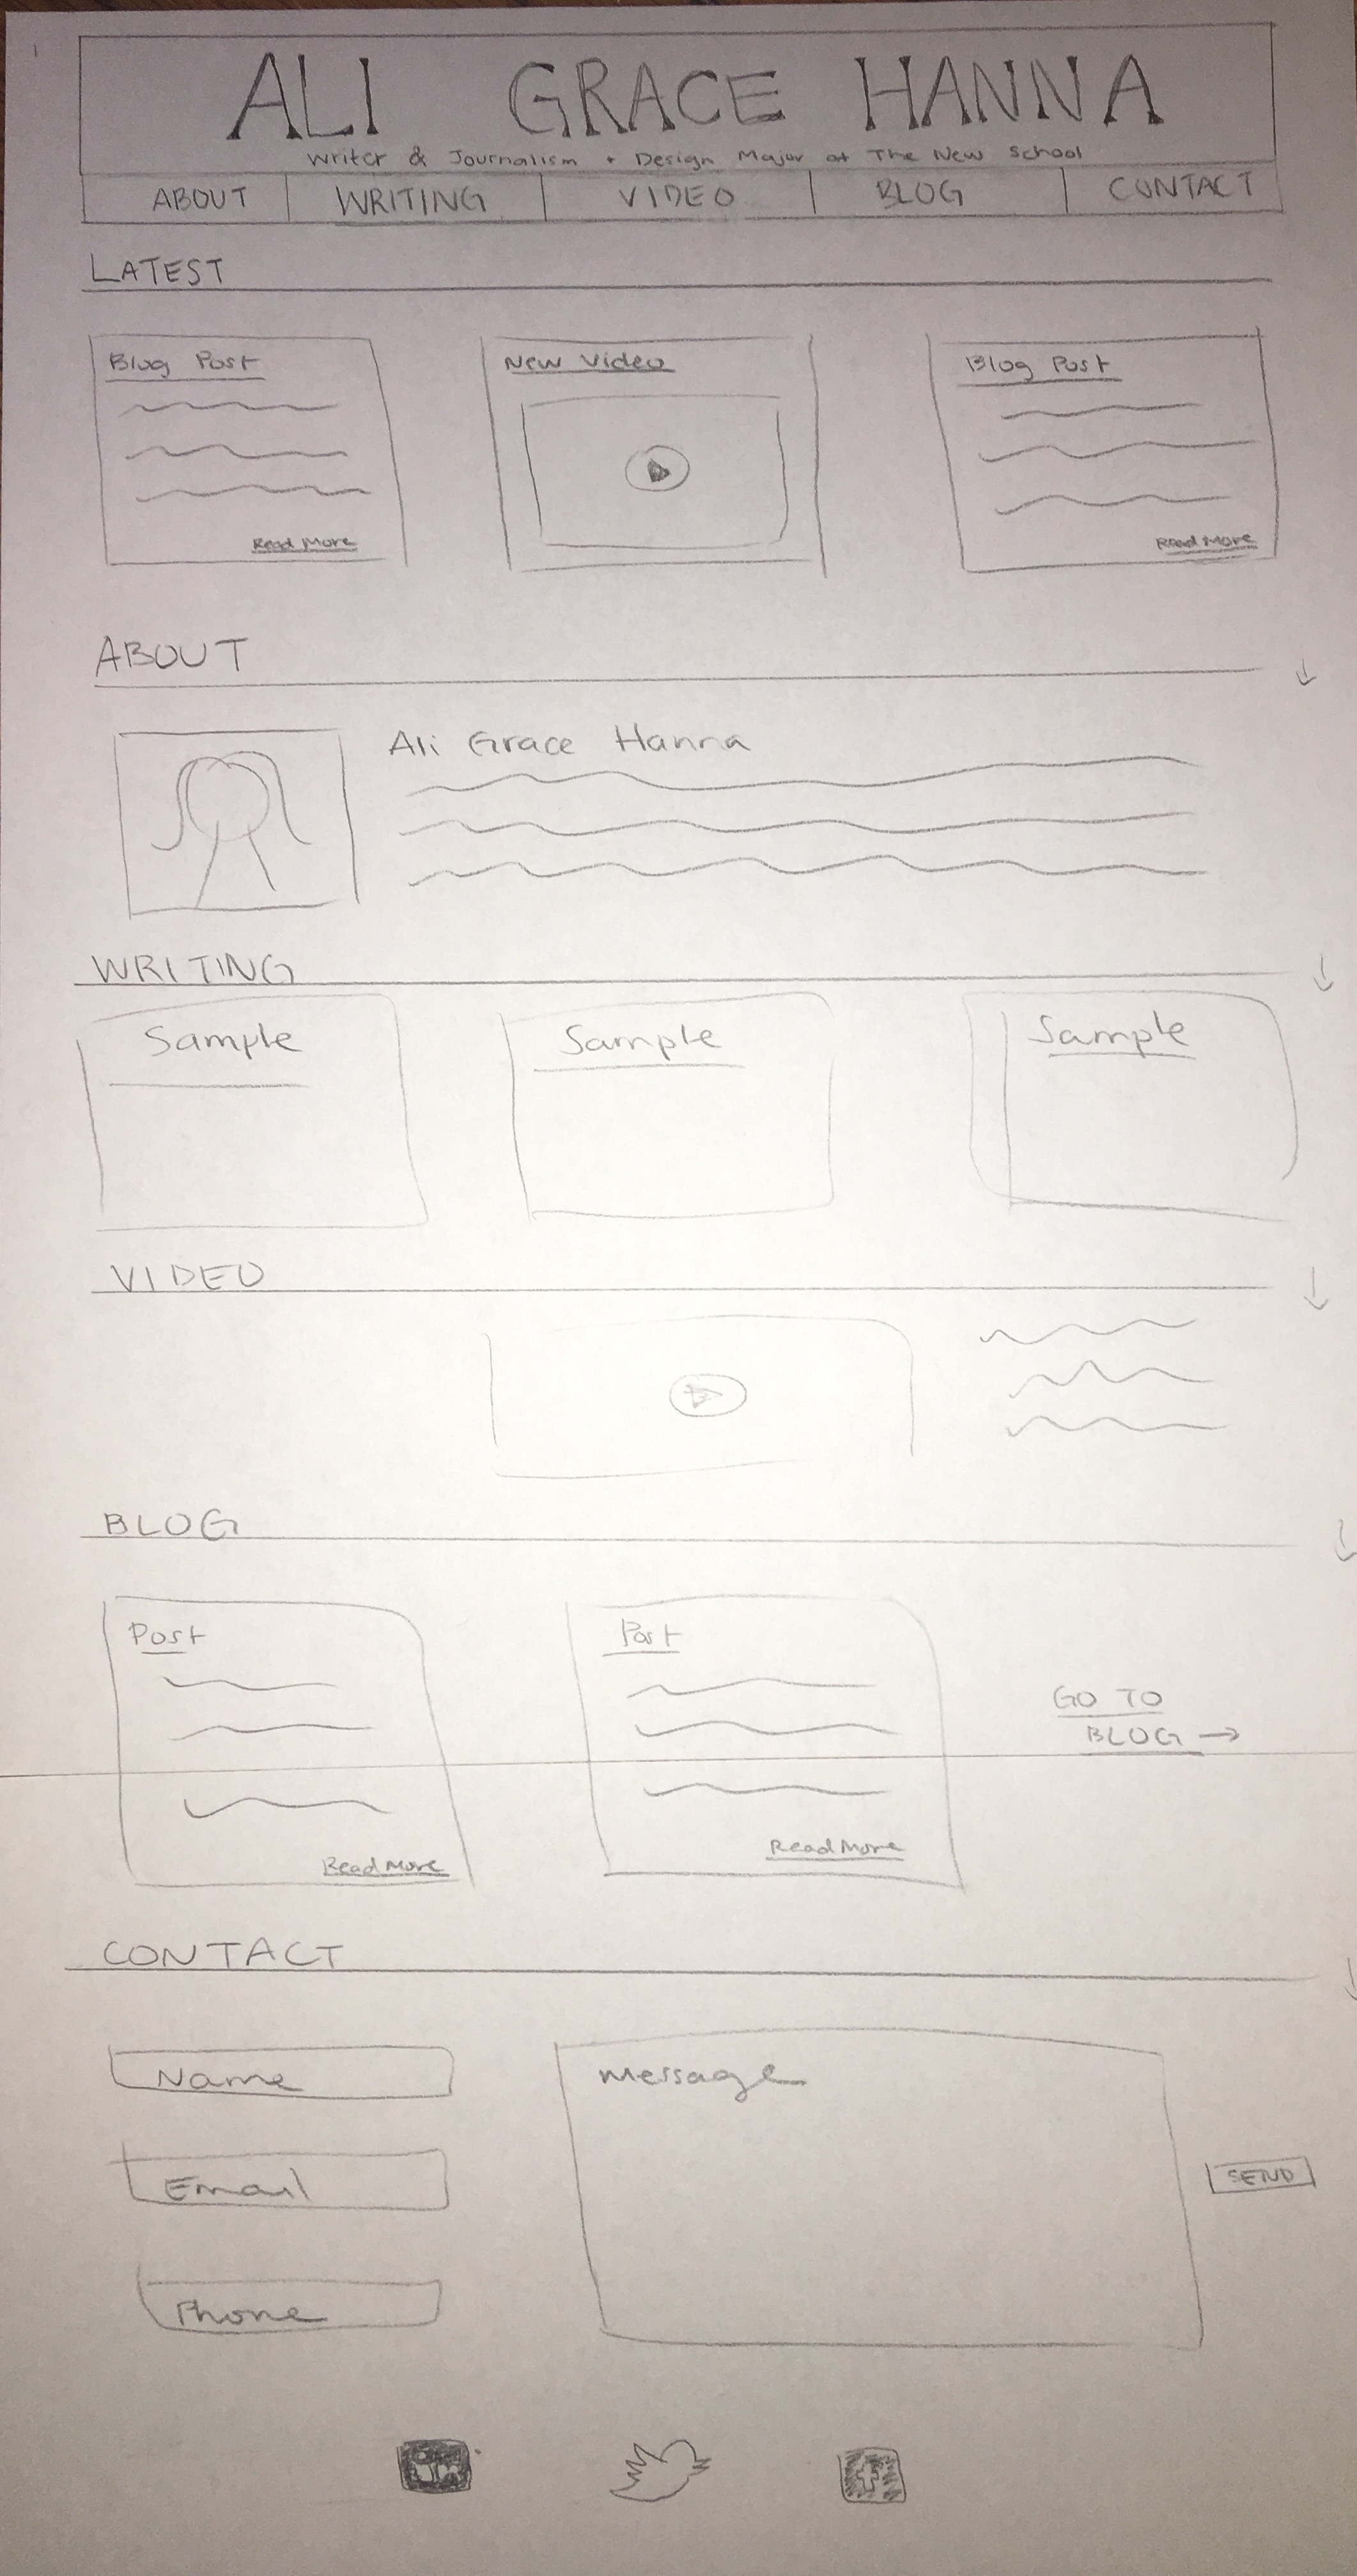 ALI GRACE HANNA
Writer & Journalism + Design Major at The New School
ABOUT WRITING VIDEO BLOG CONTACT
LATEST
Blog Post
Read More
New Video
Blog Post
Read More
ABOUT
Ali Grace Hanna
WRITING
Sample Sample Sample
VIDEO
BLOG
Post
Read More
Post
Read More
GO TO
BLOG →
CONTACT
Name
Email
Phone
Message
SEND
in
f